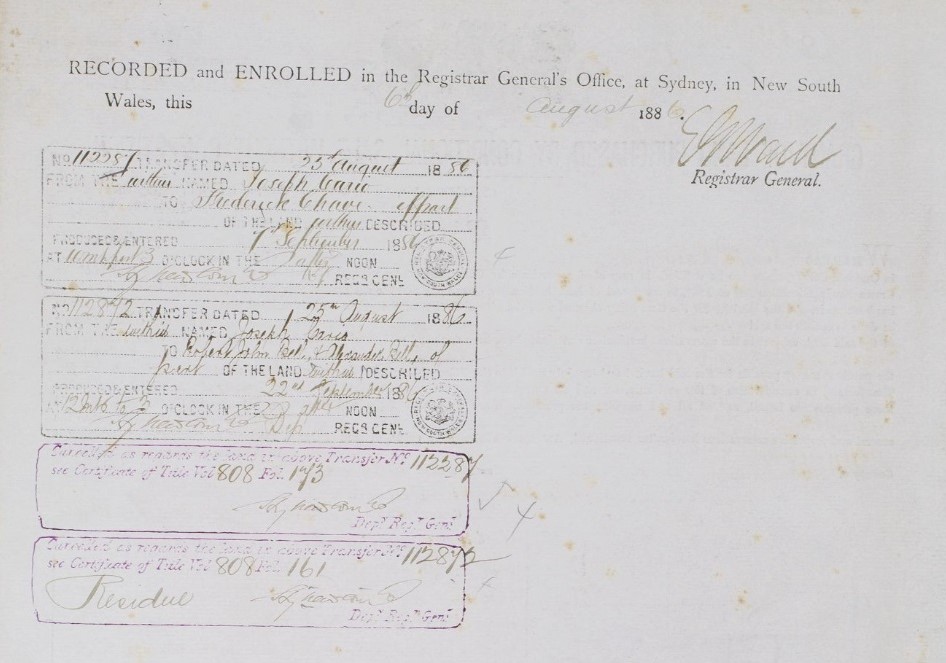 RECORDED and ENROLLED in the Registrar General's Office, at Sydney, in New South
Wales, this 6th day of August 1886.
Registrar General.
No 112287 TRANSFER DATED 25th August 1886
FROM THE within NAMED Joseph
TO Frederick Chave of part
OF THE LAND within DESCRIBED
PRODUCED & ENTERED 7th September 1886
AT O'CLOCK IN THE after NOON
REGR GENL
No 112872 TRANSFER DATED 25th August 1886
FROM THE within NAMED Joseph
TO Robert John Bell & Alexander Bell of
part OF THE LAND within DESCRIBED
PRODUCED & ENTERED 22nd September 1886
AT 12 m to 3 O'CLOCK IN THE after NOON
Dep REGR GENL
Cancelled as regards the land in above Transfer No. 112287
see Certificate of Title Vol 808 Fol. 173
Depy Regr Genl
Cancelled as regards the land in above Transfer No. 112872
see Certificate of Title Vol 808 Fol. 161
Residue
Depy Regr Genl